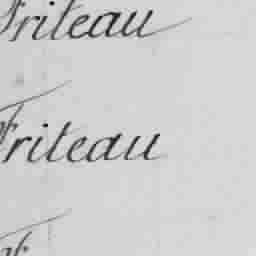 Friteau
Friteau